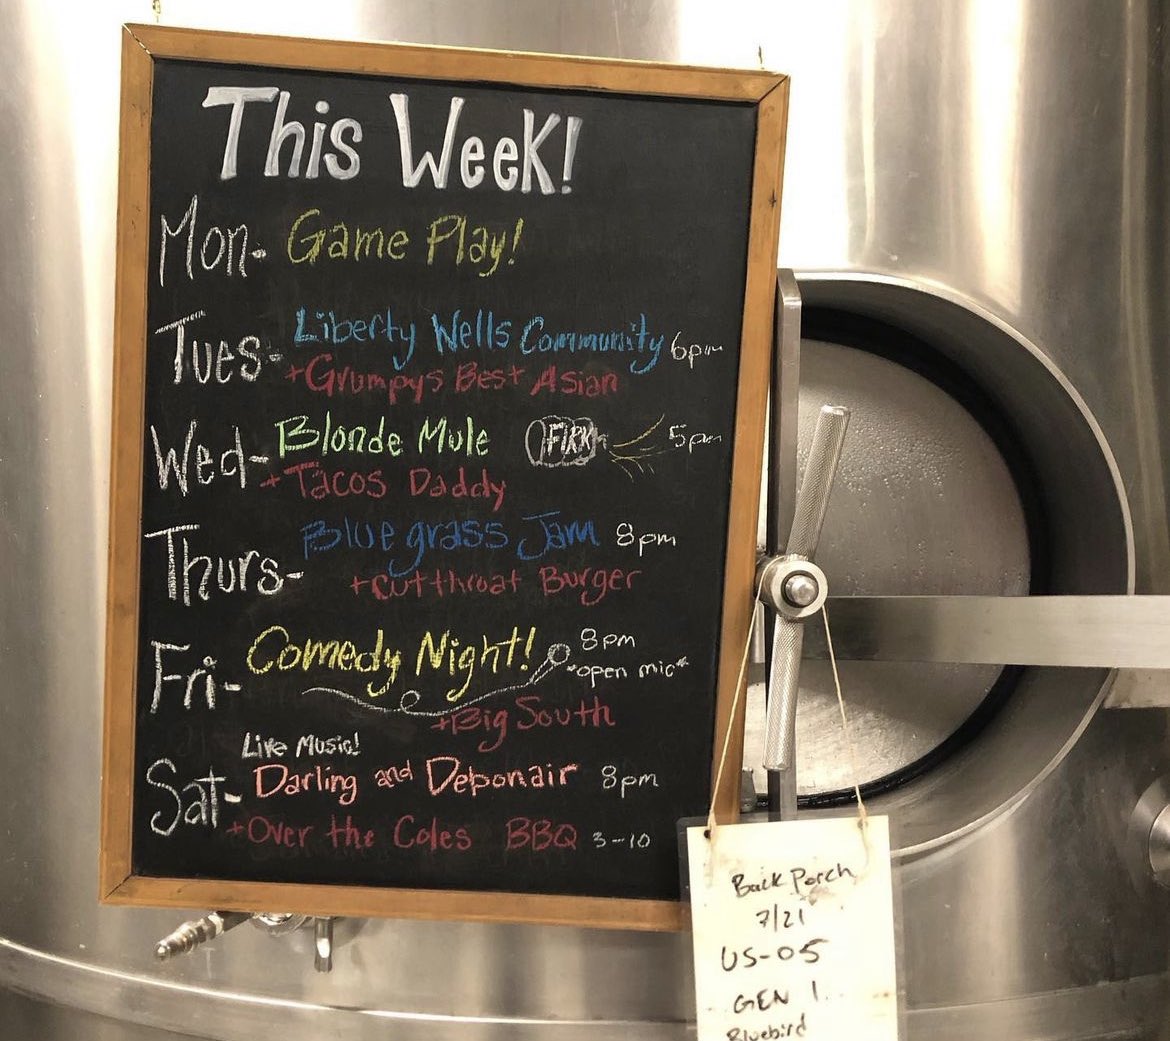 This Week!
Mon- Game Play!
Tues- Liberty Wells Community 6pm
+Grumpys Best Asian
Wed- Blonde Mule FIRKin 5pm
+Tacos Daddy
Thurs- Bluegrass Jam 8pm
+Cutthroat Burger
Fri- Comedy Night! 8pm
*open mic*
+Big South
Live Music!
Sat- Darling and Debonair 8pm
+Over the Coles BBQ 3-10
Back Porch
7/21
US-05
GEN 1
Bluebird